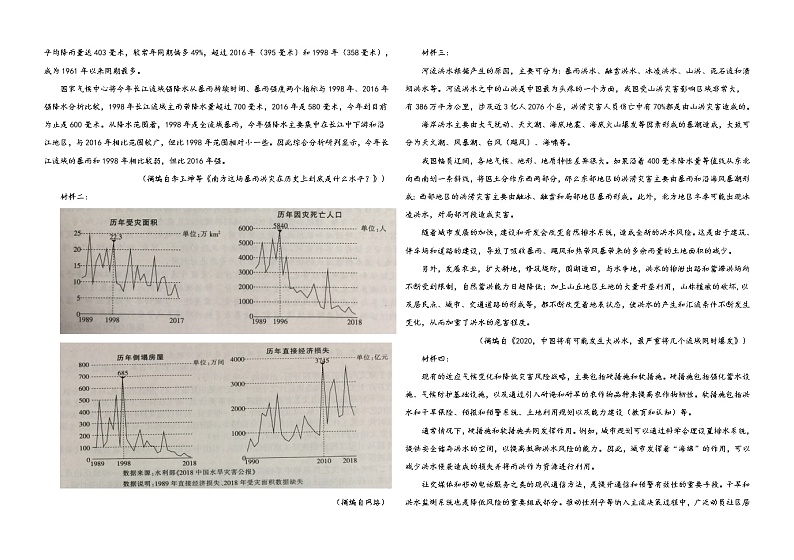 平均降雨量达 403 毫米，较常年同期偏多 49%，超过 2016 年（395 毫米）和 1998 年（358 毫米），
成为 1961 年以来同期最多。
国家气候中心将今年长江流域强降水从暴雨持续时间、暴雨强度两个指标与 1998 年、2016 年
强降水分析比较，1998 年长江流域主雨带降水量超过 700 毫米，2016 年是 580 毫米，今年到目前
为止是 600 毫米。从降水范围看，1998 年是全流域暴雨，今年强降水主要集中在长江中下游和沿
江地区，与 2016 年相比范围较广，但比 1998 年范围相对小一些。因此综合分析研判显示，今年长
江流域的暴雨和 1998 年相比较弱，但比 2016 年强。
（摘编自李玉坤等《南方这场暴雨洪灾在历史上到底是什么水平？》）
材料二：
历年受灾面积
单位：万 km²
25
20
15
10
5
0
22.3
1989 1998 2017
历年因灾死亡人口
单位：人
6000
5000
4000
3000
2000
1000
0
5840
1989 1996 2018
历年倒塌房屋
单位：万间
800
700
600
500
400
300
200
100
0
685
1989 1998 2018
历年直接经济损失
单位：亿元
4000
3000
2000
1000
0
3745
1990 2010 2018
数据来源：水利部《2018 中国水旱灾害公报》
数据说明：1989 年直接经济损失、2018 年受灾面积数据缺失
（摘编自网络）
材料三：
河流洪水根据产生的原因，主要可分为：暴雨洪水、融雪洪水、冰凌洪水、山洪、泥石流和溃
坝洪水等。河流洪水之中的山洪是中国最为头疼的一个方面，我国受山洪灾害影响区域非常大，
有 386 万平方公里，涉及近 3 亿人 2076 个县，洪涝灾害人员伤亡中有 70%都是由山洪灾害造成的。
海岸洪水主要由大气扰动、天文潮、海底地震、海底火山爆发等因素形成的暴潮造成，大致可
分为天文潮、风暴潮、台风（飓风）、海啸等。
我国幅员辽阔，各地气候、地形、地质特性差异很大。如果沿着 400 毫米降水量等值线从东北
向西南划一条斜线，将国土分作东西两部分，那么东部地区的洪涝灾害主要由暴雨和沿海风暴潮形
成；西部地区的洪涝灾害主要由融冰、融雪和局部地区暴雨形成。此外，北方地区冬季可能出现冰
凌洪水，对局部河段造成灾害。
随着城市发展的加快，建设和开发会改变自然排水系统，造成全新的洪水风险。这是由于建筑、
停车场和道路的建设，导致了吸收暴雨、飓风和热带风暴带来的多余雨量的土地面积的减少。
另外，发展农业，扩大耕地，修筑堤防，围湖造田，与水争地，洪水的排泄出路和蓄滞洪场所
不断受到限制，自然蓄洪能力日趋降低；加上山丘地区土地的大量开垦利用，山林植被的破坏，以
及居民点、城市、交通道路的形成等，都不断改变着地表状态，使洪水的产生和汇流条件不断发生
变化，从而加重了洪水的危害程度。
（摘编自《2020，中国将有可能发生大洪水，最严重将几个流域同时爆发》）
材料四：
现有的适应气候变化和降低灾害风险战略，主要包括硬措施和软措施。硬措施包括强化蓄水设
施、气候防护基础设施，以及通过引入耐涝和耐旱的农作物品种来提高农作物韧性。软措施包括洪
水和干旱保险、预报和预警系统、土地利用规划以及能力建设（教育和认知）等。
通常情况下，硬措施和软措施共同发挥作用。例如，城市规划可以通过科学合理设置排水系统，
提供安全储存洪水的空间，以提高抵御洪水风险的能力。因此，城市发挥着“海绵”的作用，可以
减少洪水侵袭造成的损失并将雨洪作为资源进行利用。
社交媒体和移动电话服务之类的现代通信方法，是提升通信和预警有效性的重要手段。干旱和
洪水监测系统也是降低风险的重要组成部分。推动性别平等纳入主流决策过程中，广泛动员社区居